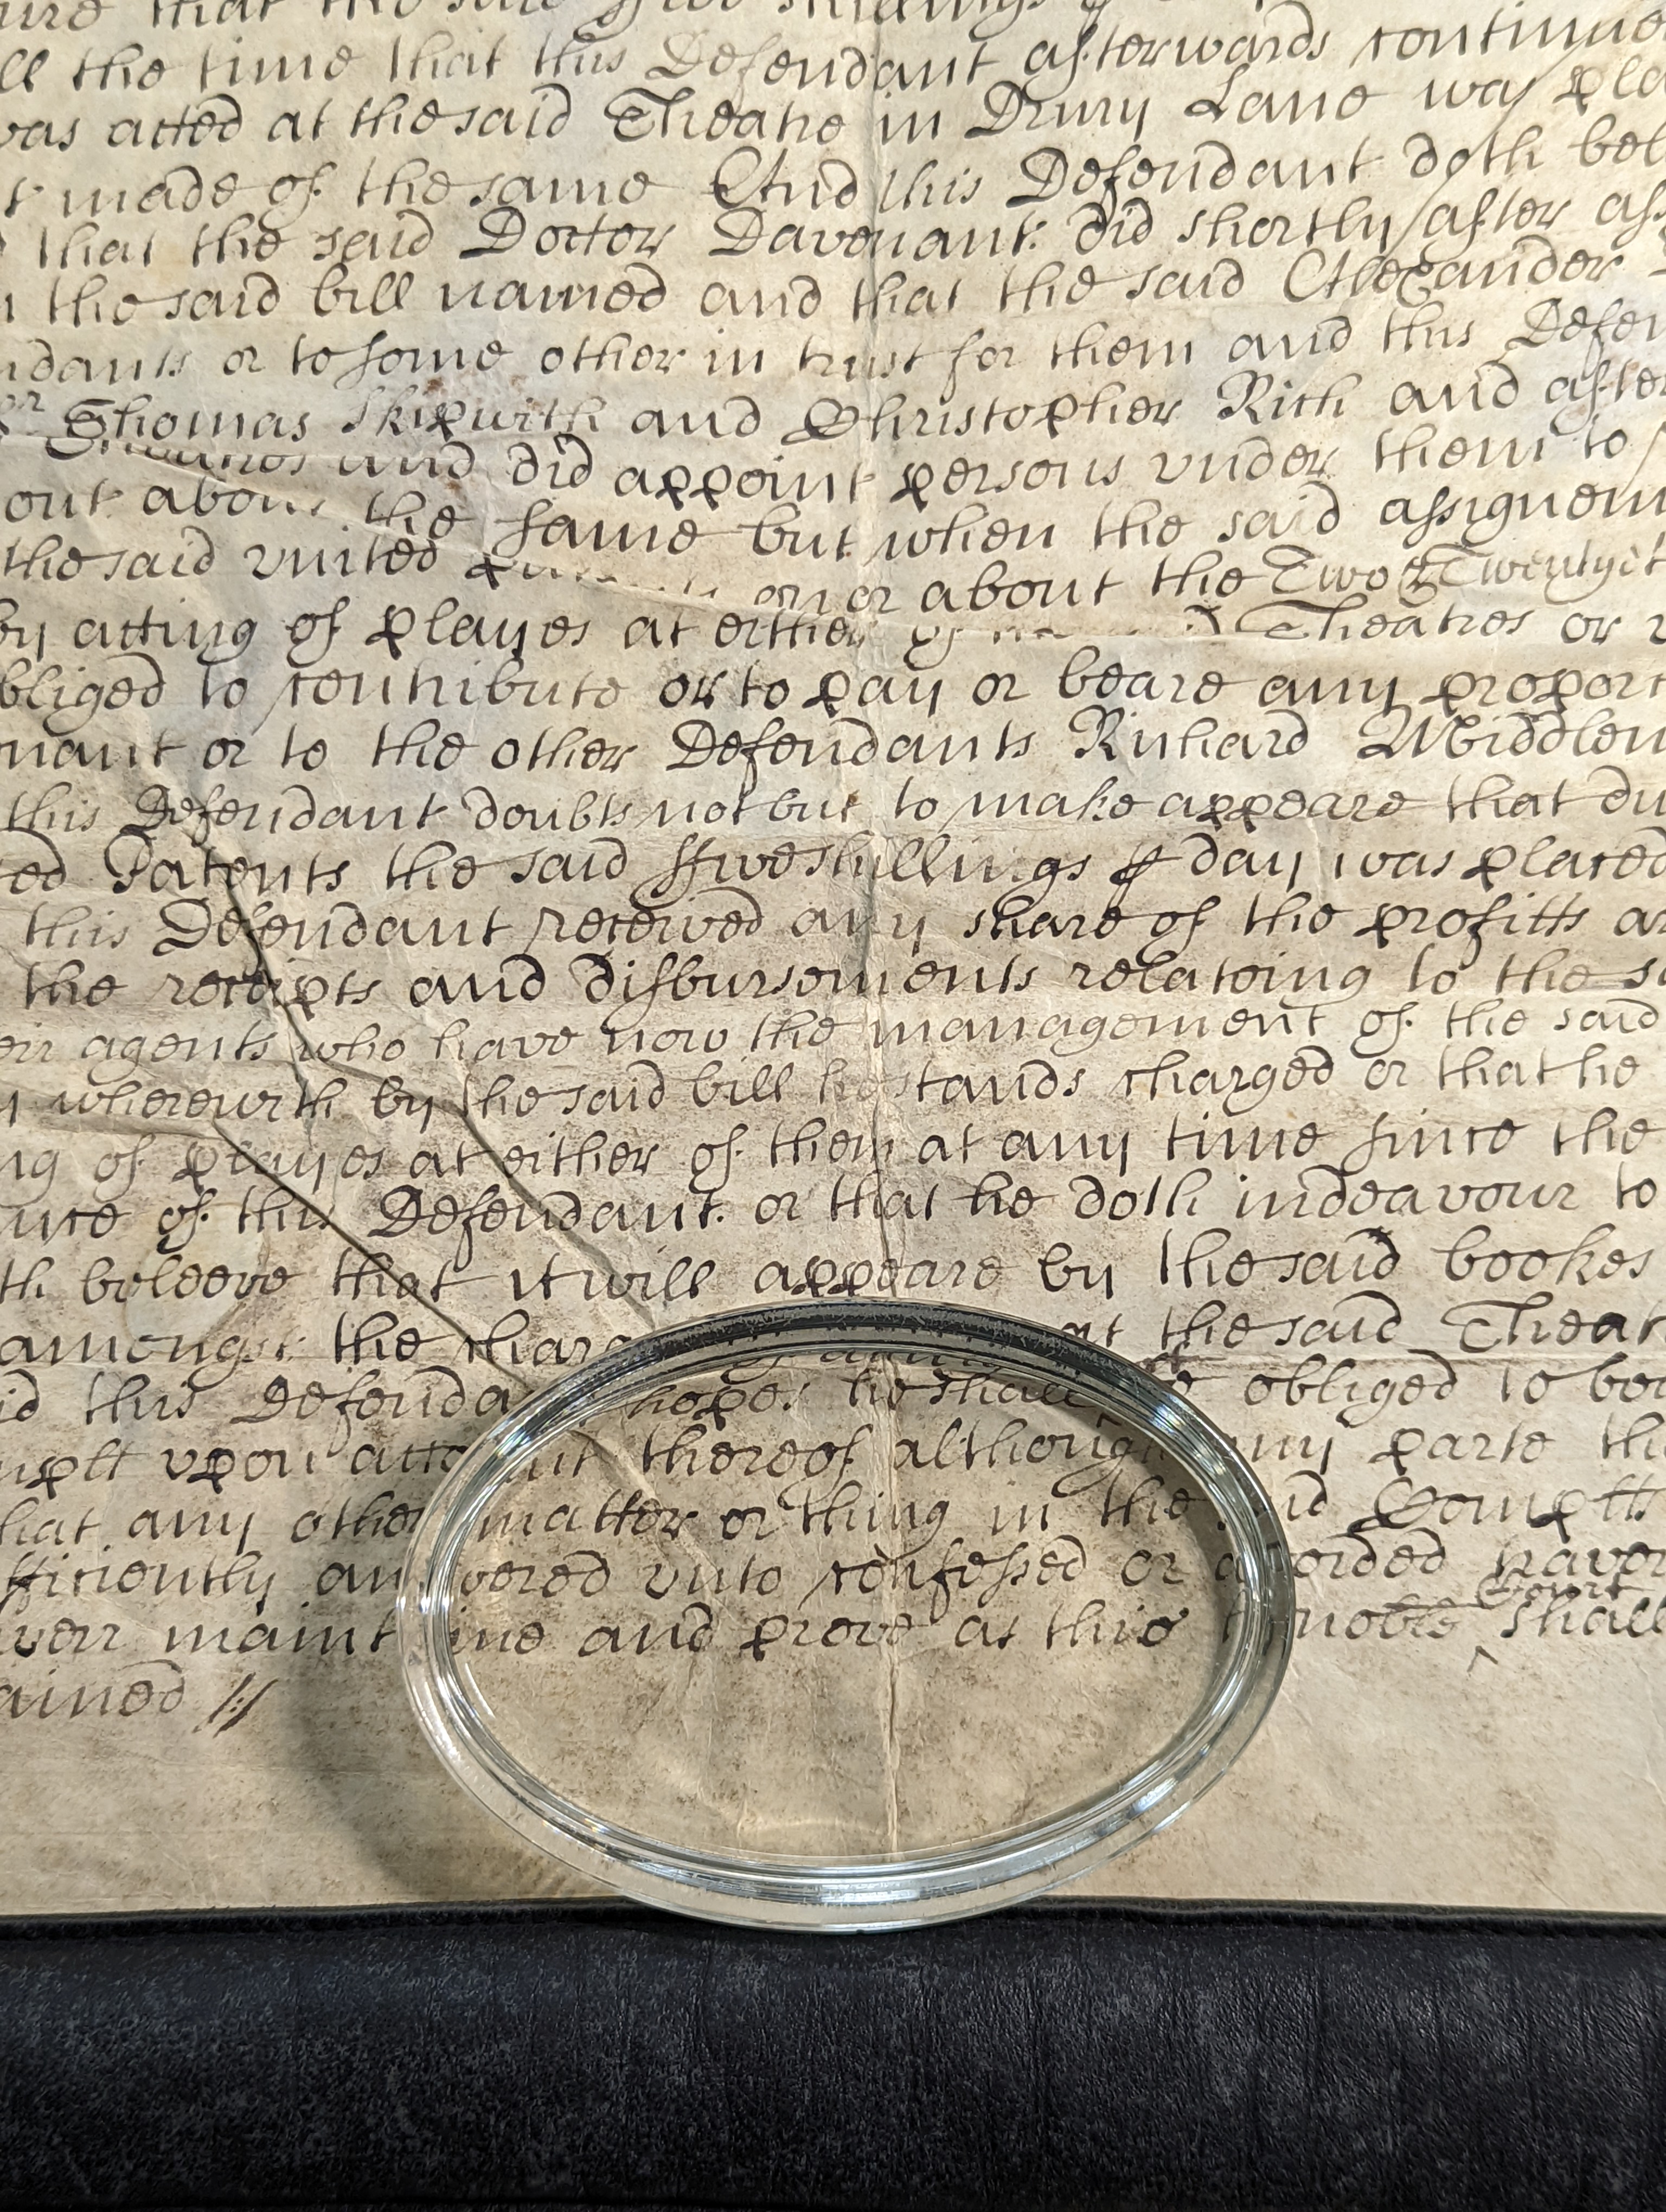 that the said ffive shillings
ll the time that this Defendant afterwards continue
was acted at the said Theatre in Drury Lane was pla
t made of the same And this Defendant doth bel
that the said Doctor Davenant did shortly after ass
the said bill named and that the said Alexander
ndants or to some other in trust for them and this Defen
Thomas Skipwith and Christopher Rich and after
and did appoint persons vnder them to
out about the same but when the said assignem
the said vnited on or about the Two & Twentyeth
by acting of playes at either of Theatres or
bliged to contribute or to pay or beare any proport
nant or to the other Defendants Richard Middlem
this Defendant doubts not but to make appeare that du
ted Patents the said ffive shillings p day was placed
this Defendant received any share of the profitts
the receipts and disbursements relateing to the
eir agents who have now the management of the said
wherewith by the said bill he stands charged or that he
ng of playes at either of them at any time since the
of this Defendant or that he doth indeavour to
th beleeve that it will appeare by the said bookes
amongst the charge of acting at the said Theat
id this Defendant hopes he shall be obliged to
mplt vpon thereof although any parte
hat any other matter or thing in the said Complts
fficiently answered vnto confessed or avoided
averr maintaine and prove as this honoble Court shall
ained